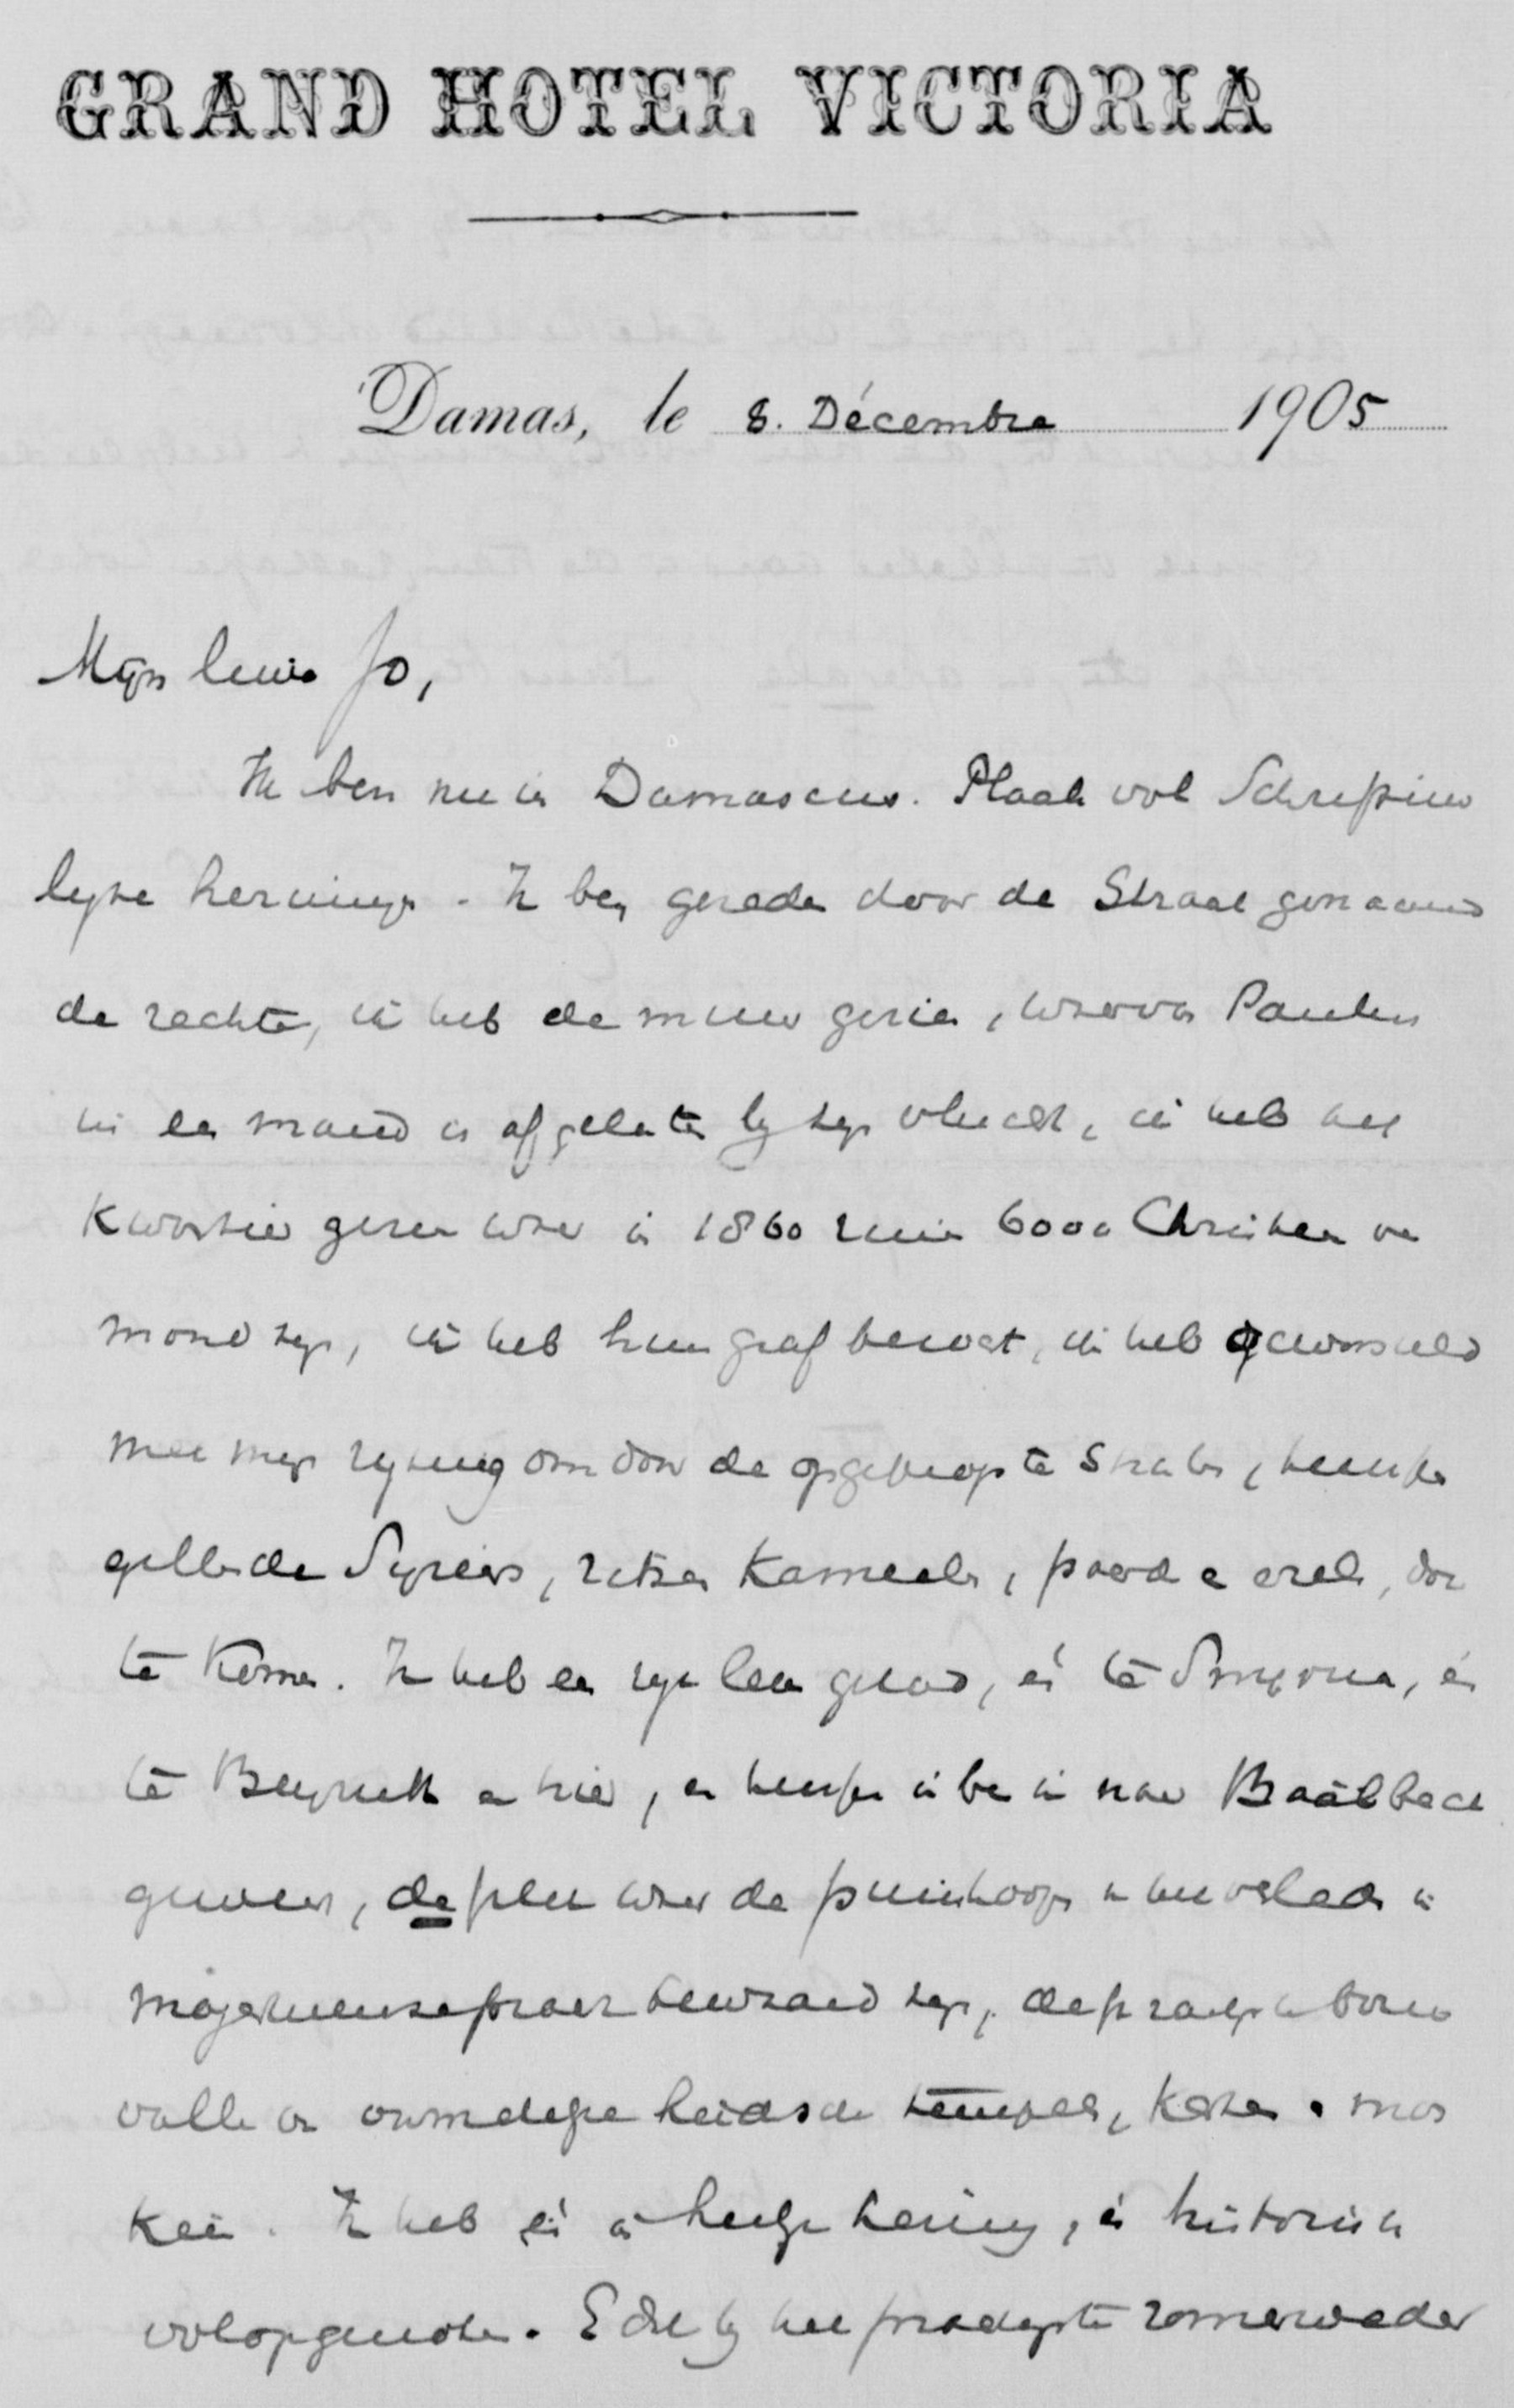 GRAND HOTEL VICTORIA
Damas, le 8. Décembre 1905
Mijn lieve Jo,
Ik ben nu in Damascus. Plaats vol Schriftuur
lijke herinnering. Ik ben gereden door de Straat genaamd
de rechte, ik heb de muur gezien, waarvan Paulus
in een mand is afgelaten bij zijn vlucht, ik heb het
kwartier gezien waar in 1860 ruim 6000 Christenen ver
moord zijn, ik heb hun graf bezocht, ik heb geworsteld
met mijn rijtuig om door de opgepropte straten, tusschen
gillende Syriers, reken kameelen, paarden en ezels, door
te komen. Ik heb een rijk leven gehad, én te Smyrna, én
te Beyruth en hier, en tusschen in ben ik naar Baälbeck
geweest, de plek waar de puinhoopen van het verleden in
majestueuse praal bewaard zijn, de prachtigen bouw
vallen van onmetelijke heidensche tempels, kerken en mos
keën. Ik heb én in heilige herinnering, én historisch
volop genoten. En dit bij het prachtigste zomerweder